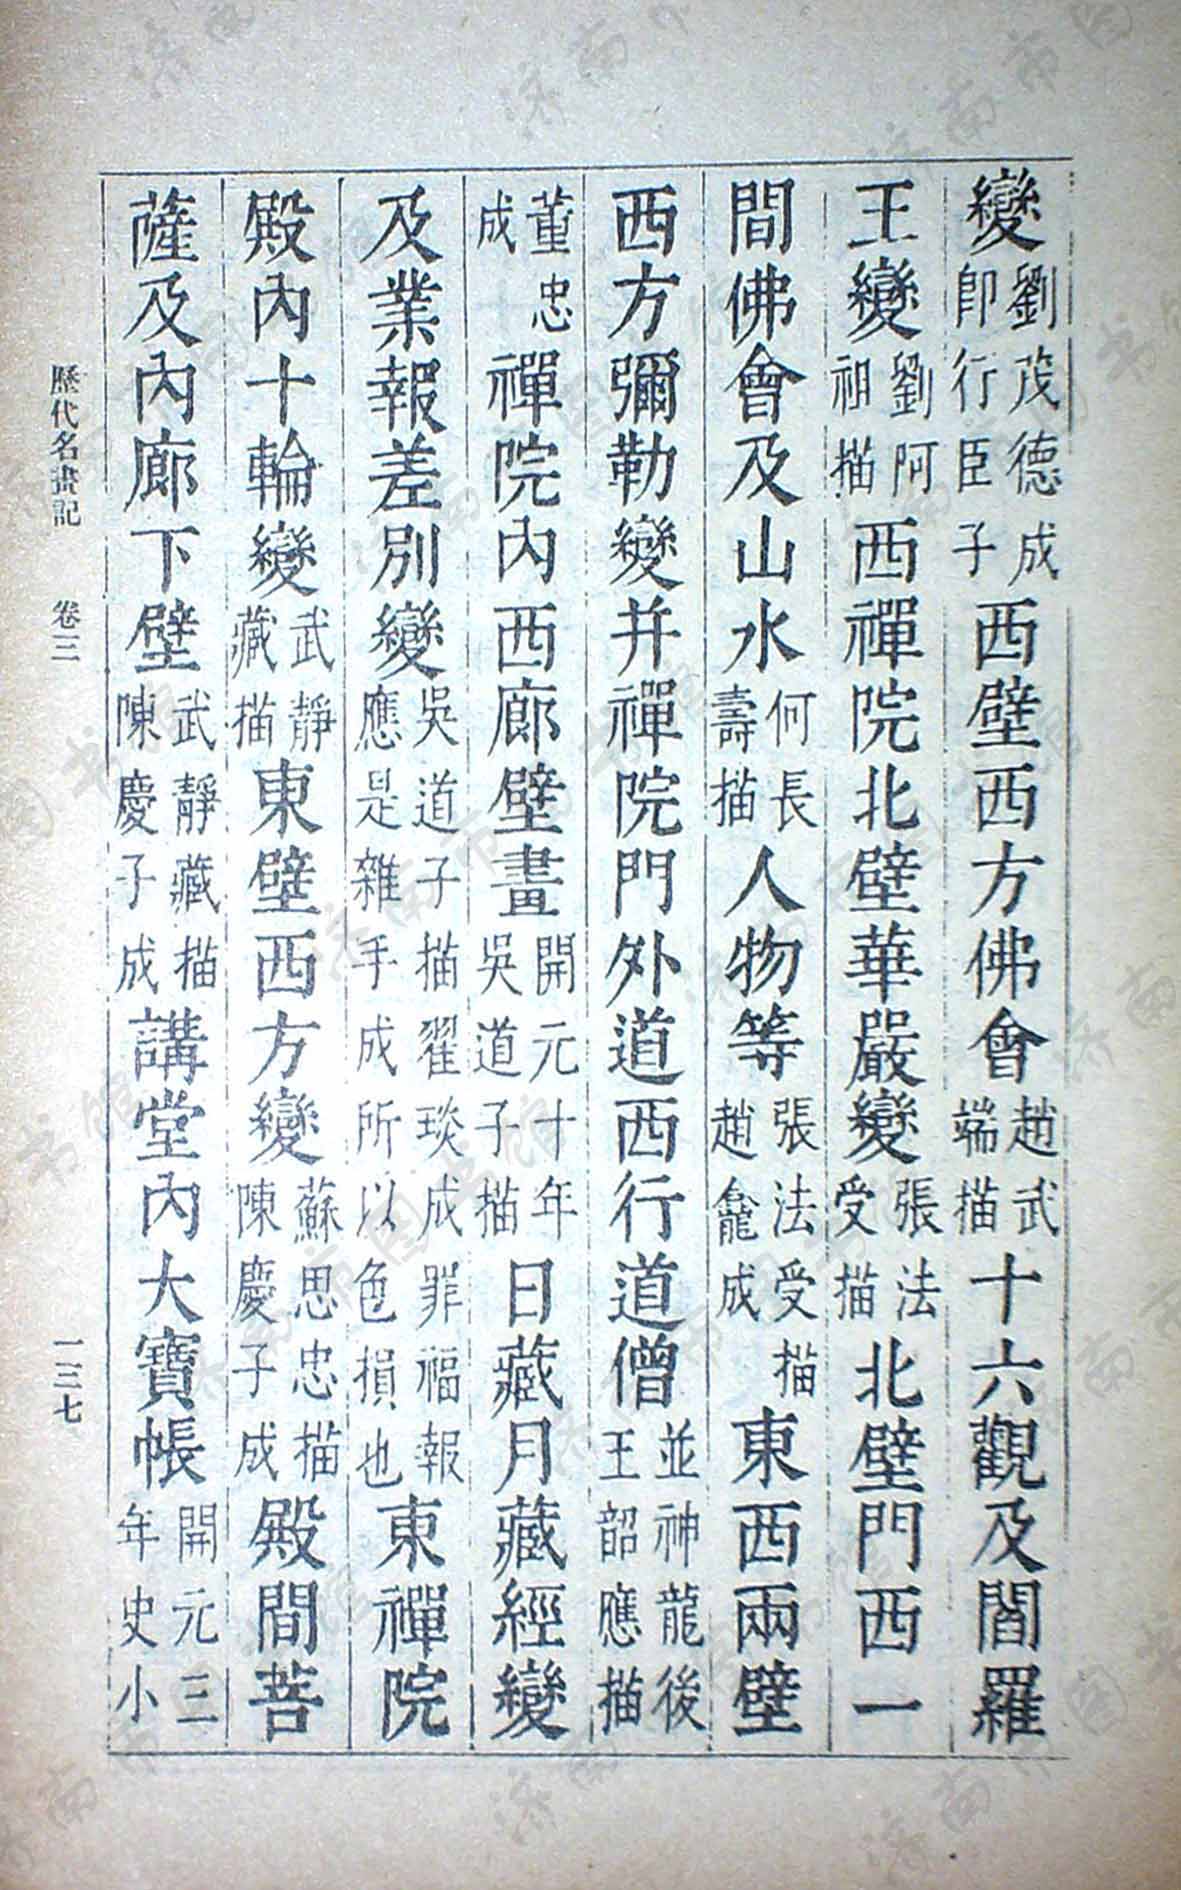 變劉茂德成即行臣子西壁西方佛會趙武端描十六觀及閻羅
王變劉阿祖描西禪院北壁華嚴變張法受描北壁門西一
間佛會及山水何長壽描人物等張法受描趙龕成東西兩壁
西方彌勒變并禪院門外道西行道僧並神龍後王韶應描
董忠成禪院內西廊壁畫開元十年吳道子描日藏月藏經變
及業報差別變吳道子描翟琰成罪福報應是雜手成所以色損也東禪院
殿內十輪變武靜藏描東壁西方變蘇思忠描陳慶子成殿間菩
薩及內廊下壁武靜藏描陳慶子成講堂內大寶帳開元三年史小
歷代名畫記 卷三 一三七
济南市图书馆